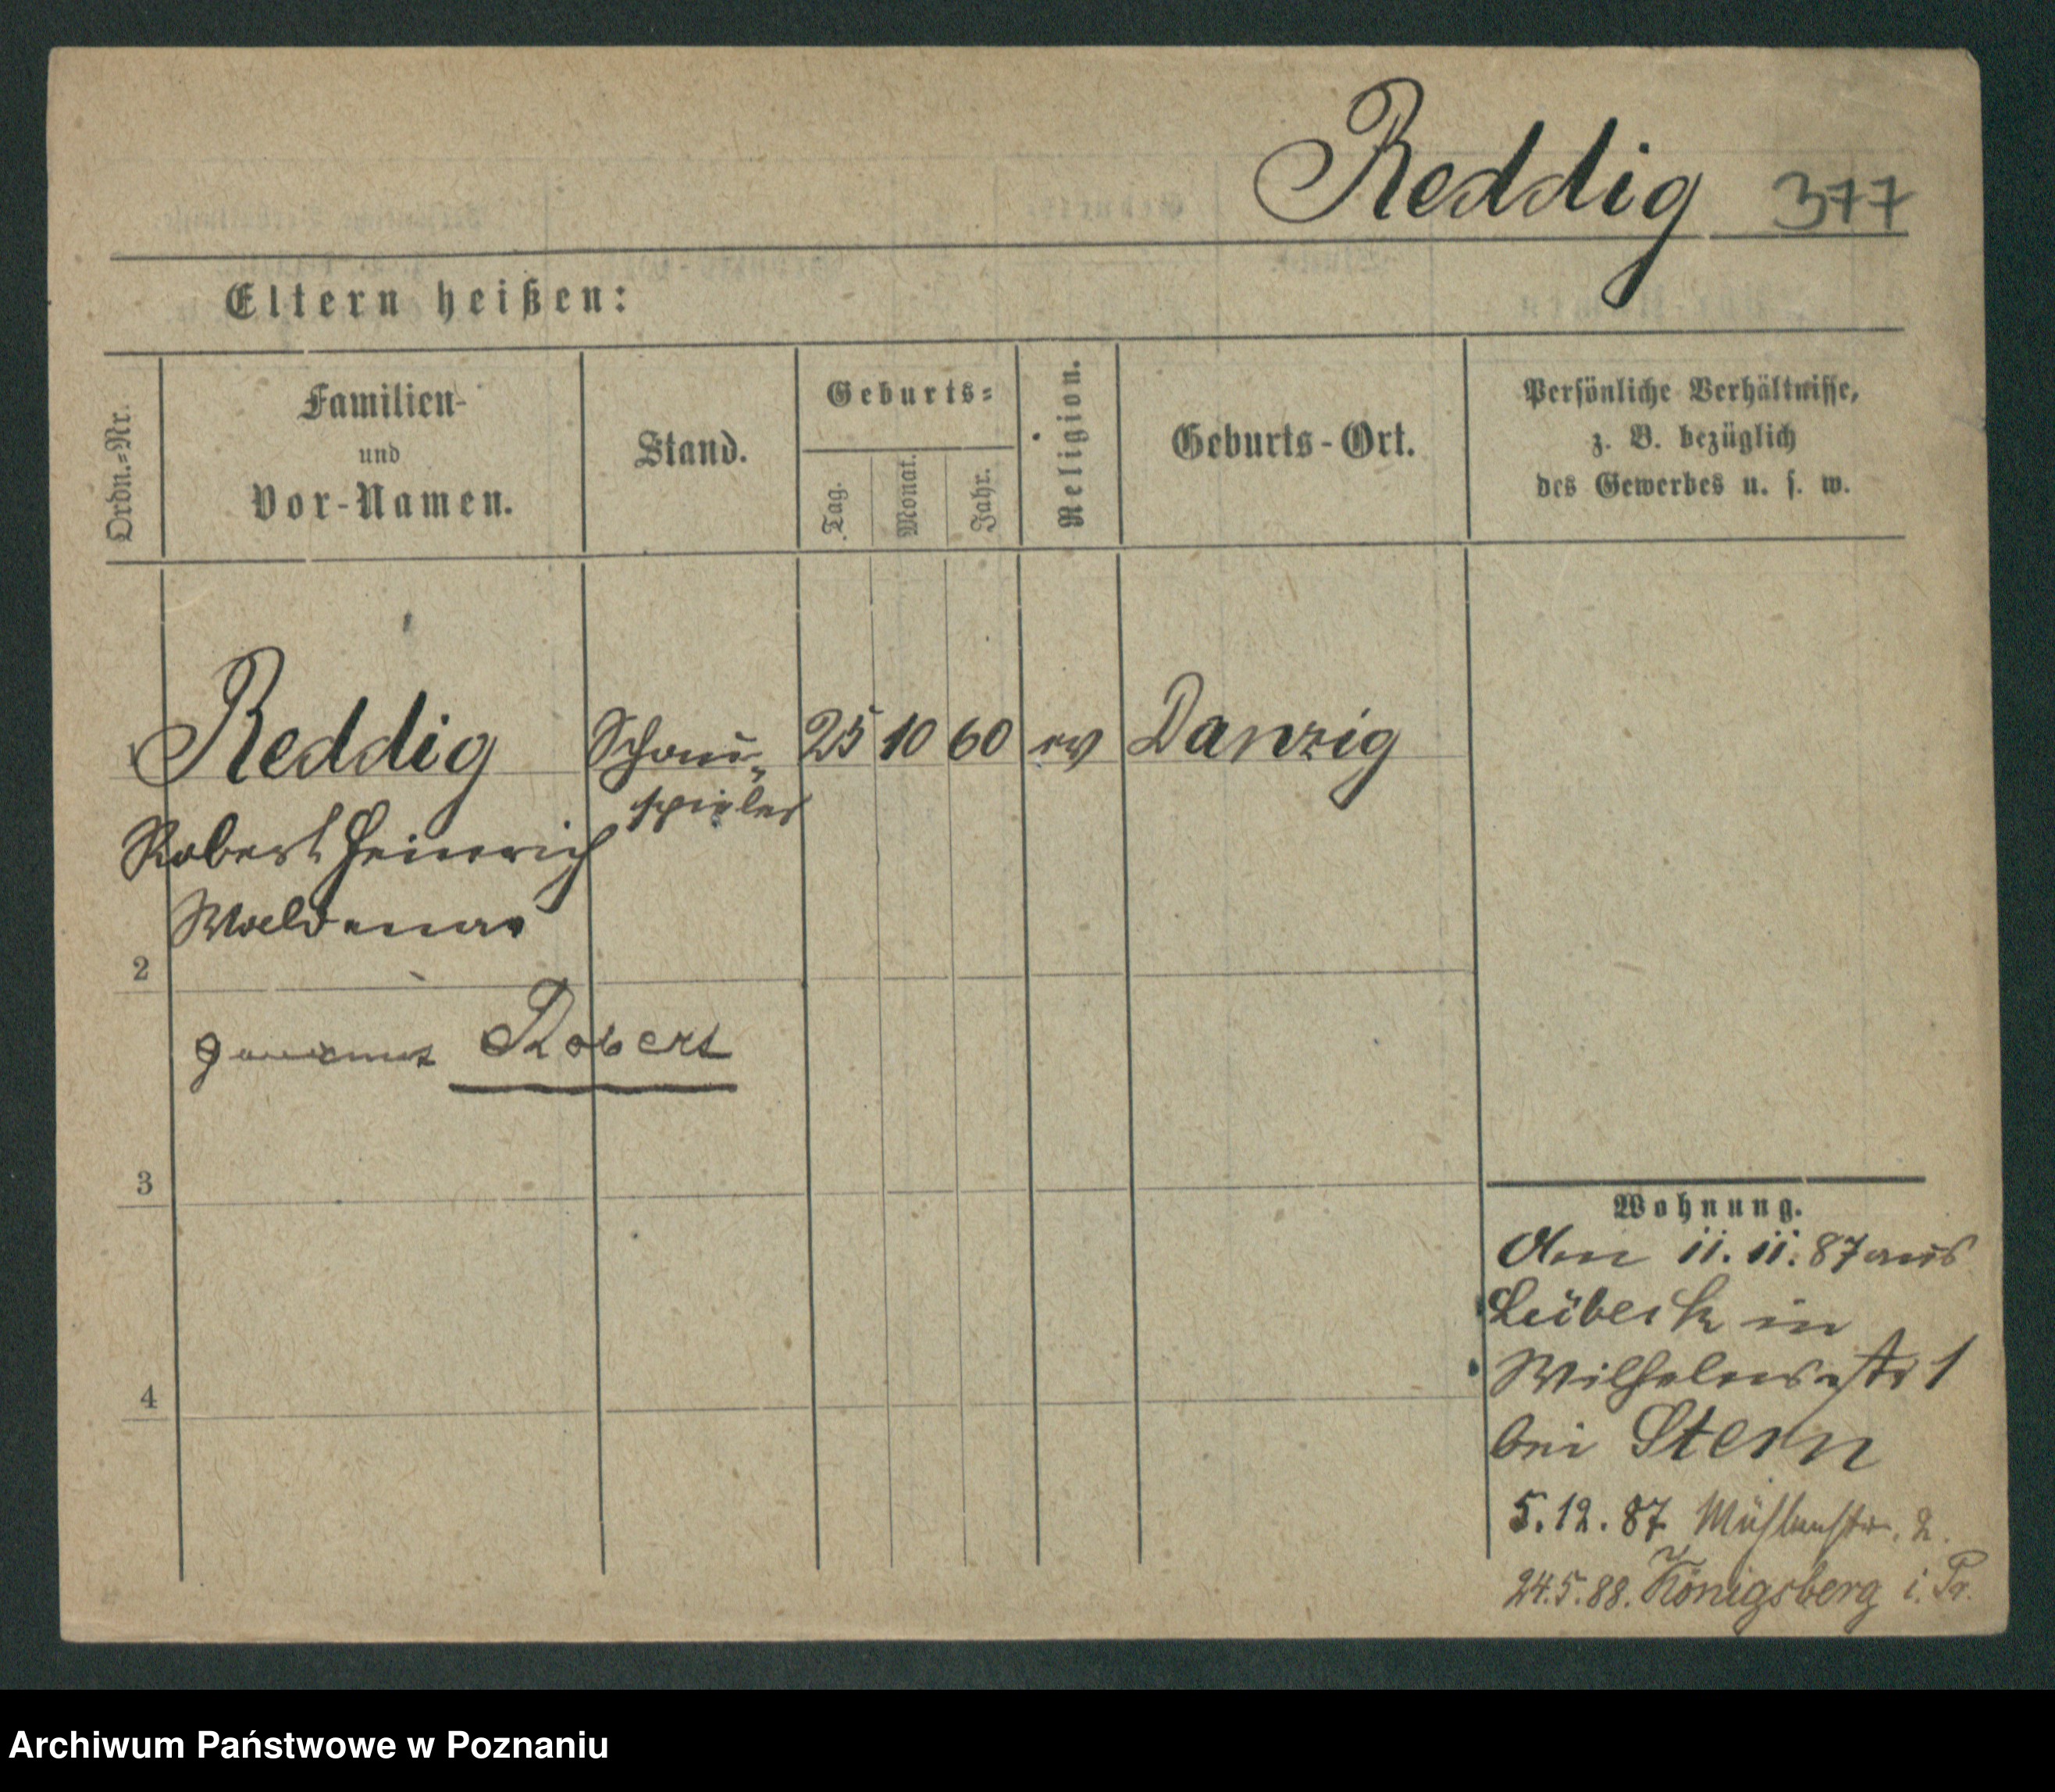 Reddig 377
Eltern heißen:
Ordn.-Nr.
Familien-
und
Vor-Namen.
Stand.
Geburts-
Tag.
Monat.
Jahr.
Religion.
Geburts-Ort.
Persönliche Verhältnisse,
z. B. bezüglich
des Gewerbes u. s. w.
Reddig Schau- 25 10 60 ev Danzig
spieler
Robert Heinrich
Waldemar
2
genannt Robert
3
4
Wohnung.
Am 11. 11. 87 aus
Lübeck in
Wilhelmsstr 1
bei Stern
5.12.87 Mühlenstr. 2.
24.5.88. Königsberg i. Pr.
Archiwum Państwowe w Poznaniu